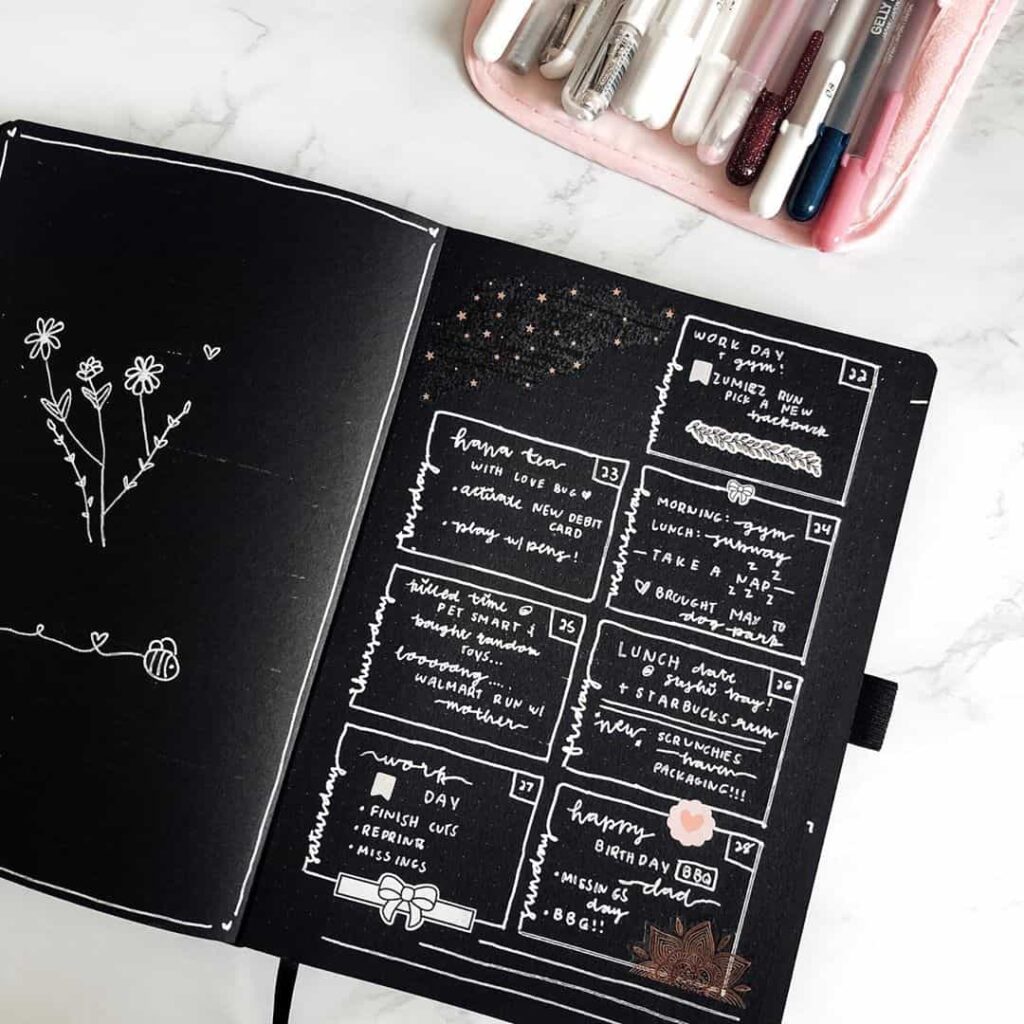 GELLY
monday
22
WORK DAY
+ gym!
ZUMIEZ RUN
PICK A NEW
backpack
tuesday
23
hana tea
WITH LOVE BUG
• activate NEW DEBIT
CARD
• play w/ pens!
wednesday
24
MORNING: gym
LUNCH: subway
— TAKE A NAP —
z z
z z z
BROUGHT MAY TO
dog park
thursday
25
killed time @
PET SMART &
bought random
TOYS...
looooong....
WALMART RUN W/
mother
friday
26
LUNCH date
@ sushi bay!
+ STARBUCKS run
• new
SCRUNCHIES
haven
PACKAGING!!!
saturday
27
work
DAY
• FINISH CUTS
• REPRINT
• MISSINGS
sunday
28
happy
BIRTHDAY BBQ
dad
• MISSINGS
day
• BBQ!!